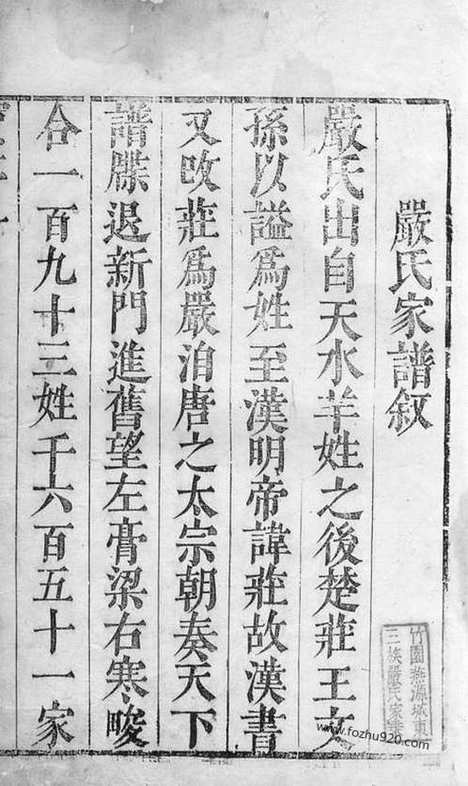 嚴氏家譜叙
嚴氏出自天水羊姓之後楚莊王支
孫以謚爲姓至漢明帝諱莊故漢書
又改莊爲嚴洎唐之太宗朝奏天下
譜牒退新門進舊望左膏粱右寒畯
合一百九十三姓千六百五十一家
竹園燕源城東
三族嚴氏家譜
www.fozhu920.com